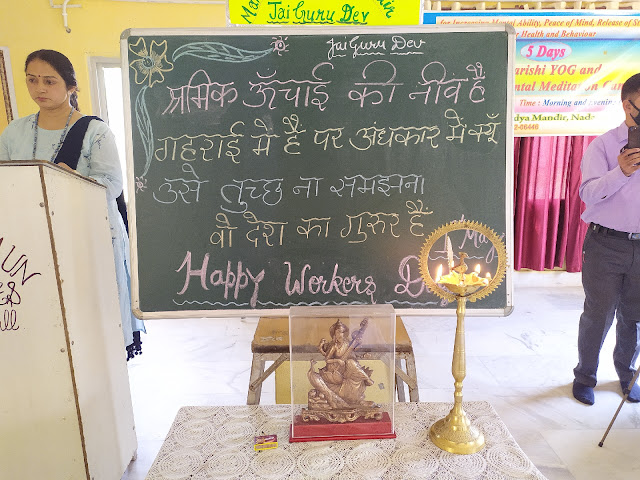 Jai Guru Dev
for Increasing Mental Ability, Peace of Mind, Release of
Health and Behaviour
5 Days
arishi YOG and
ental Meditation
Time : Morning and evening
dya Mandir, Nade
2-66446
Jai Guru Dev
श्रमिक ऊँचाई की नीव है
गहराई में है पर अंधकार में क्यूँ
उसे तुच्छ ना समझना
वो देश का गुरुर है
1 May
Happy Workers D
UN